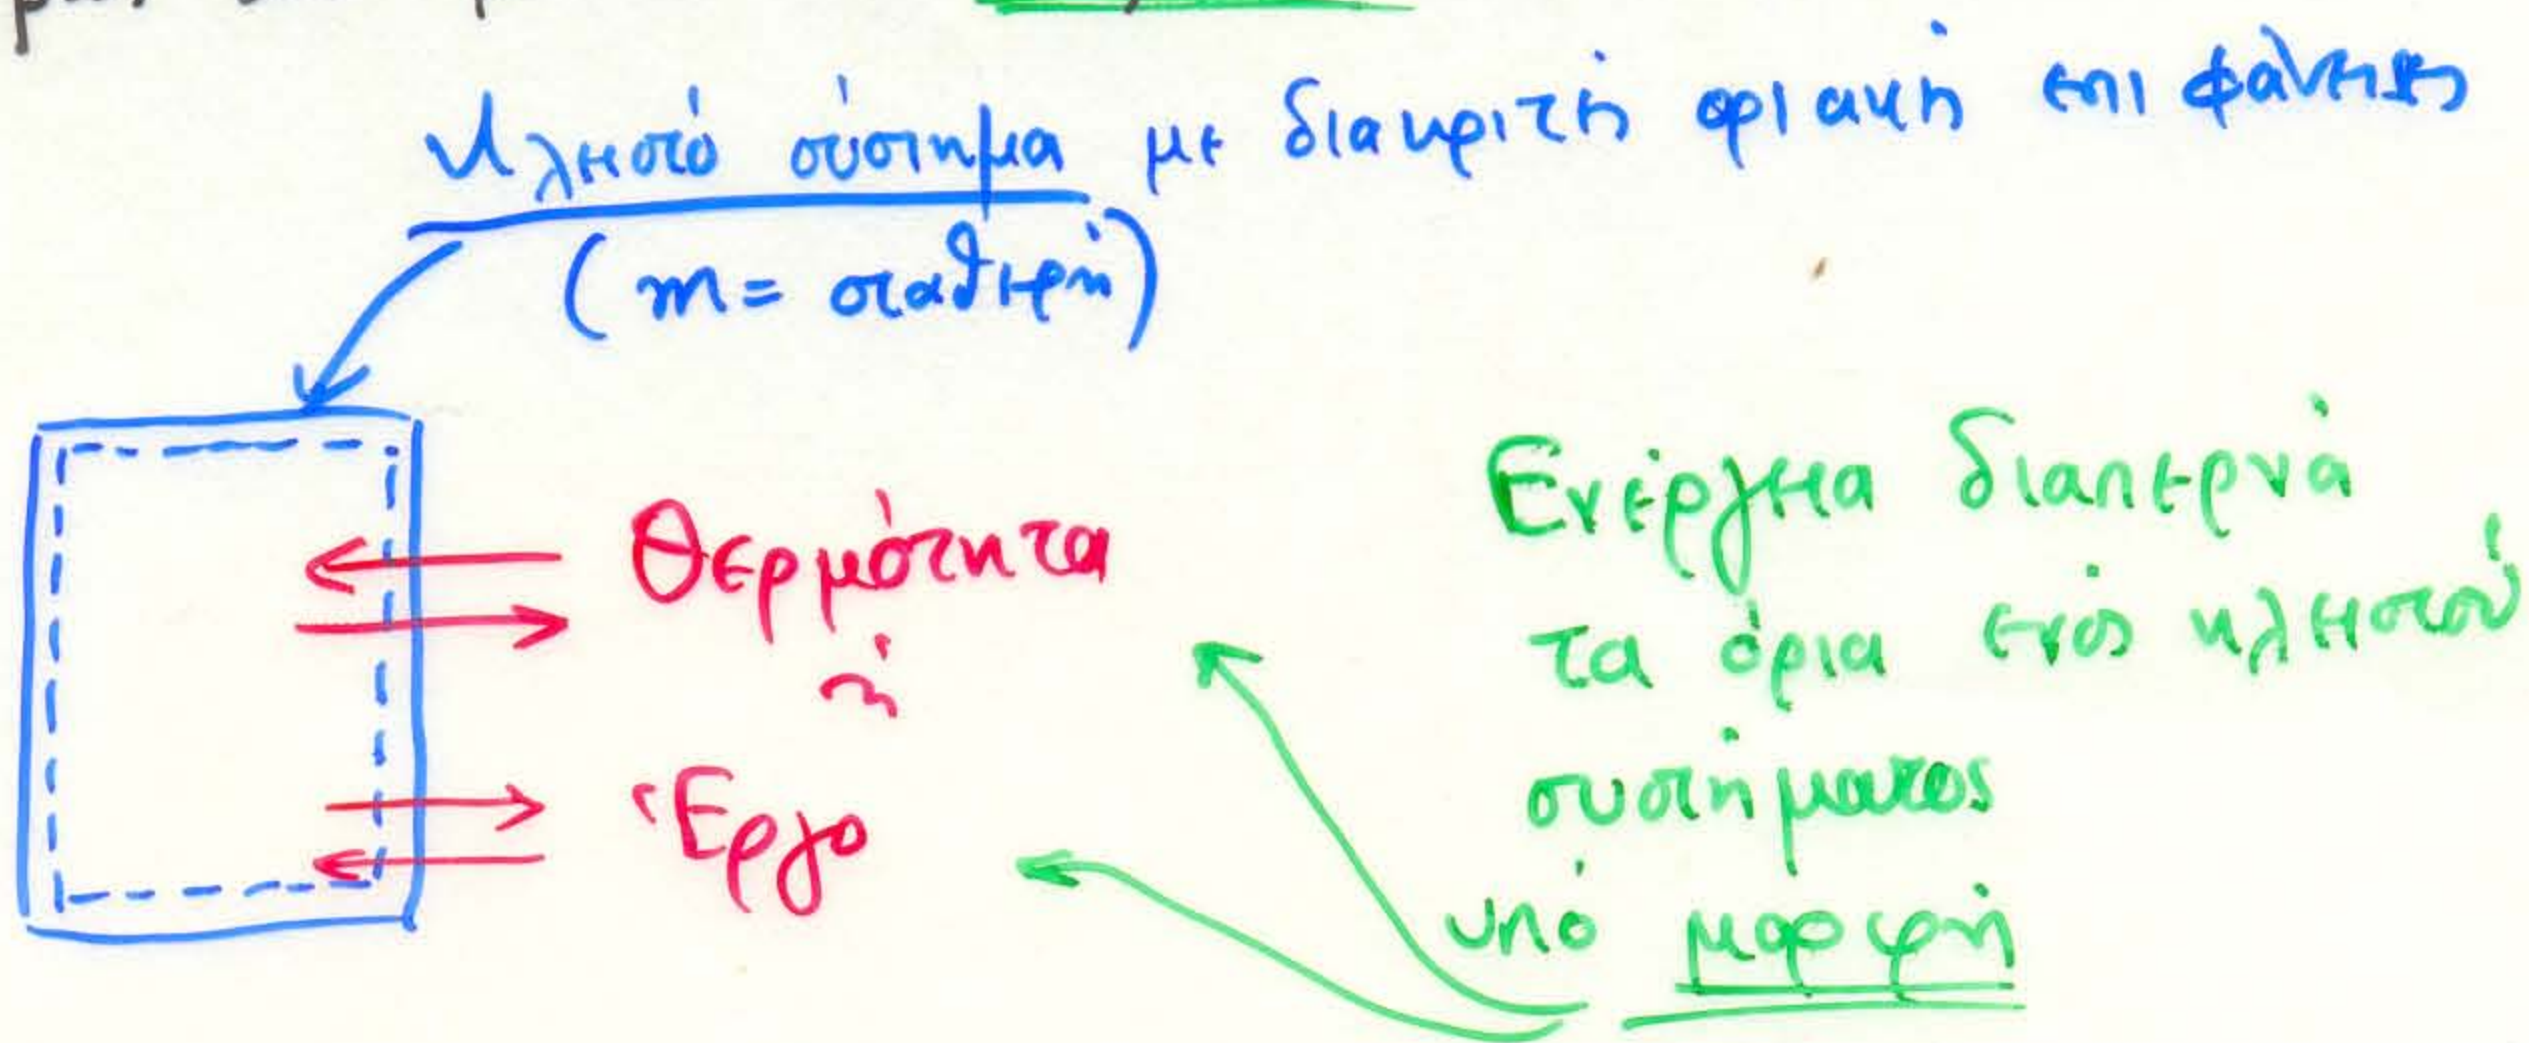 Κλειστό σύστημα με διακριτή οριακή επιφάνεια
(m = σταθερή)
Θερμότητα
ή
Έργο
Ενέργεια διαπερνά
τα όρια ενός κλειστού
συστήματος
υπό μορφή